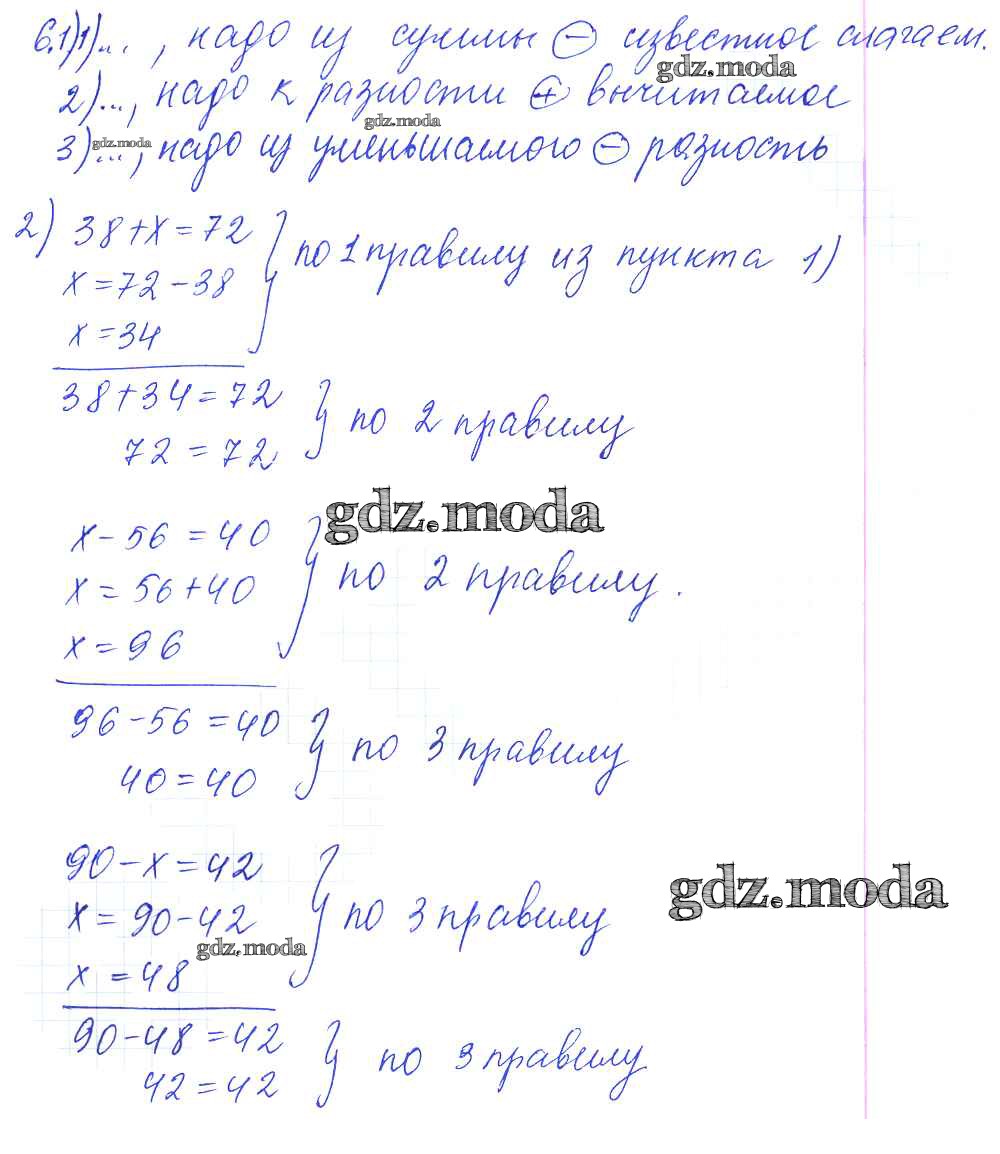 6.1)1)..., надо из суммы ⊖ известное слагаем.
gdz.moda
2)..., надо к разности ⊕ вычитаемое
gdz.moda
3)..., надо из уменьшаемого ⊖ разность
gdz.moda
2) 38+x=72
x=72-38
x=34
по 1 правилу из пункта 1)
38+34=72
72=72
по 2 правилу
gdz.moda
x-56=40
x=56+40
x=96
по 2 правилу.
96-56=40
40=40
по 3 правилу
90-x=42
x=90-42
x=48
по 3 правилу
gdz.moda
gdz.moda
90-48=42
42=42
по 3 правилу